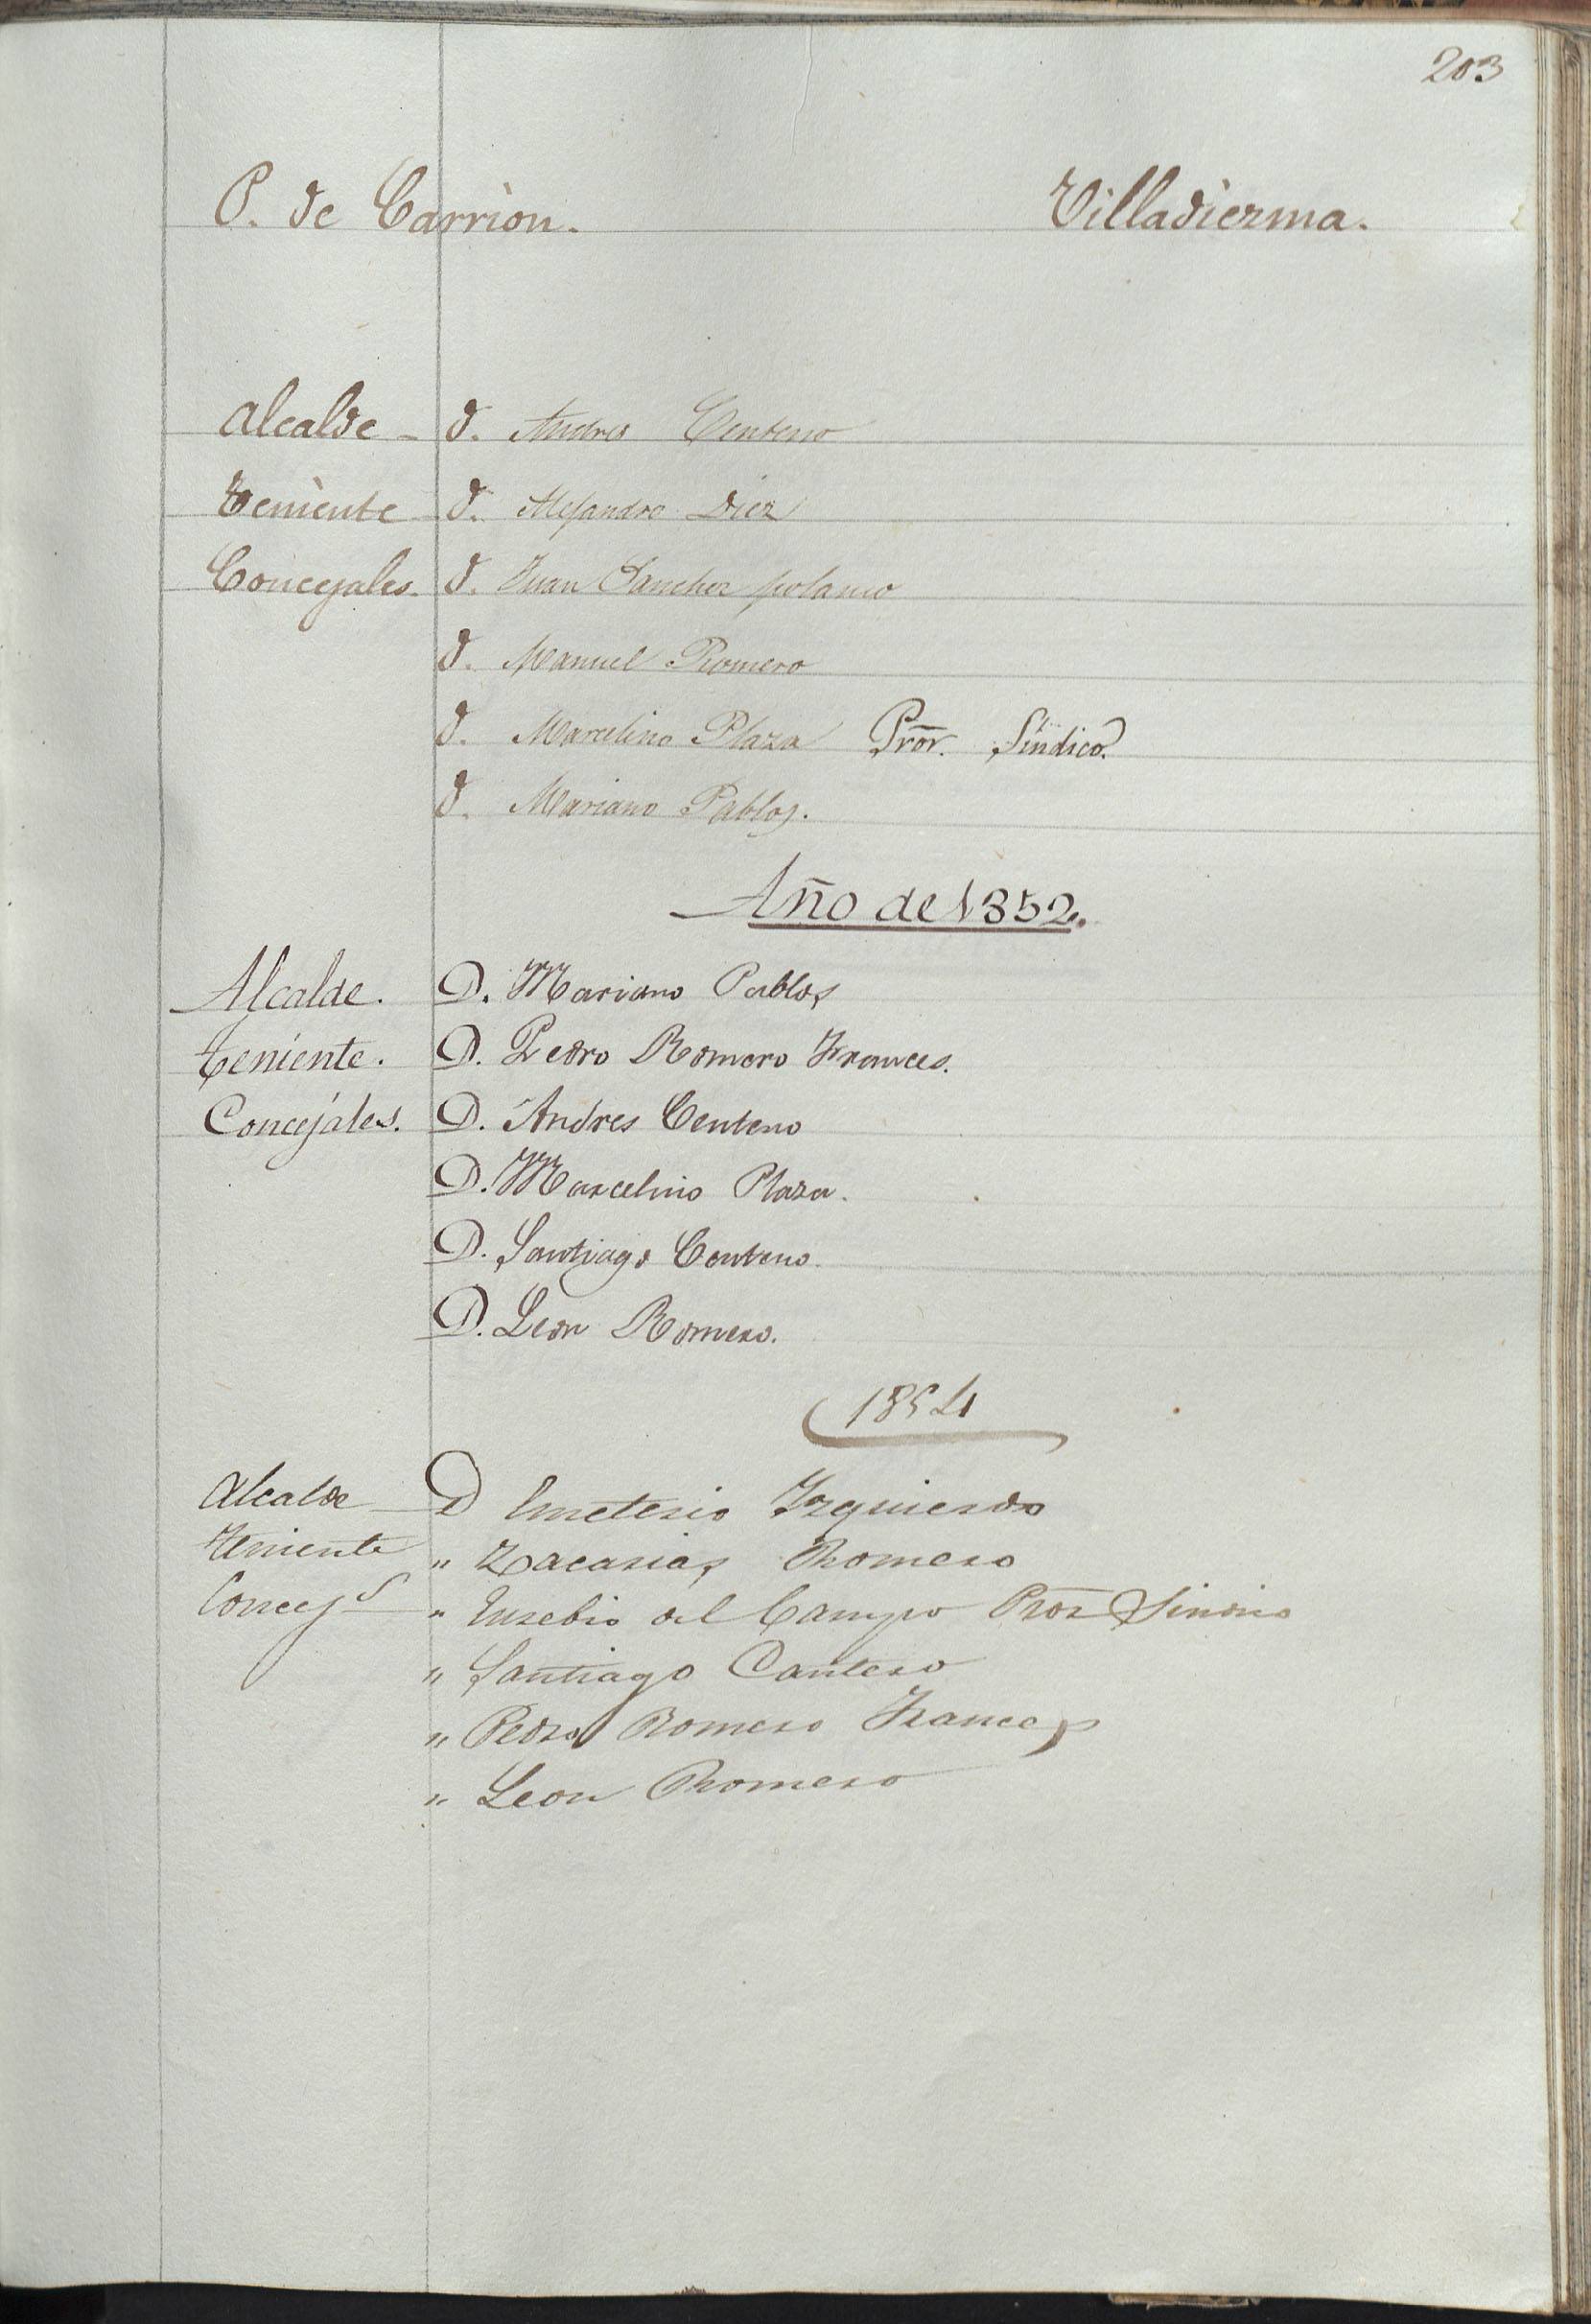 203
P. de Carrion. Villadiezma.
Alcalde - D. Andres Centeno
Teniente D. Alejandro Diez
Concejales. D. Juan Sanchez polanco
D. Manuel Romero
D. Marcelino Plaza Pror. Síndico.
D. Mariano Pablos.
Año de 1852.
Alcalde. D. Mariano Pablos
teniente. D. Pedro Romero Frances.
Concejales. D. Andres Centeno
D. Marcelino Plaza.
D. Santiago Centeno.
D. Leon Romero.
1854
Alcalde D Emeterio Izquierdo
Teniente " Zacarias Romero
Concejs " Eusebio del Campo Pror Sindico
" Santiago Cantero
" Pedro Romero Frances
" Leon Romero